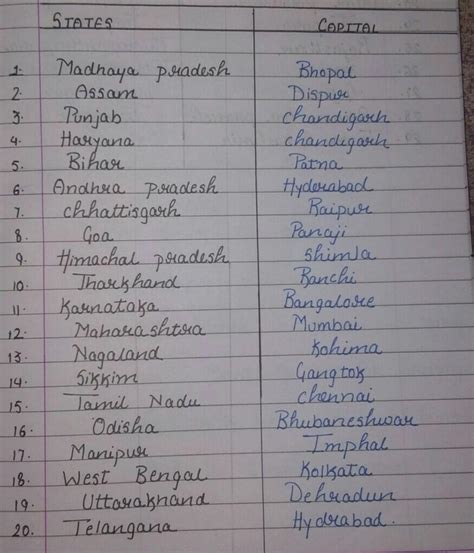 STATES CAPITAL
1. Madhaya pradesh Bhopal
2. Assam Dispur
3. Punjab chandigarh
4. Haryana chandigarh
5. Bihar Patna
6. Andhra pradesh Hyderabad
7. chhattisgarh Raipur
8. Goa Panaji
9. Himachal pradesh shimla
10. Jharkhand Ranchi
11. Karnataka Bangalore
12. Maharashtra Mumbai
13. Nagaland Kohima
14. Sikkim Gangtok
15. Tamil Nadu chennai
16. Odisha Bhubaneshwar
17. Manipur Imphal
18. West Bengal Kolkata
19. Uttarakhand Dehradun
20. Telangana Hydrabad.